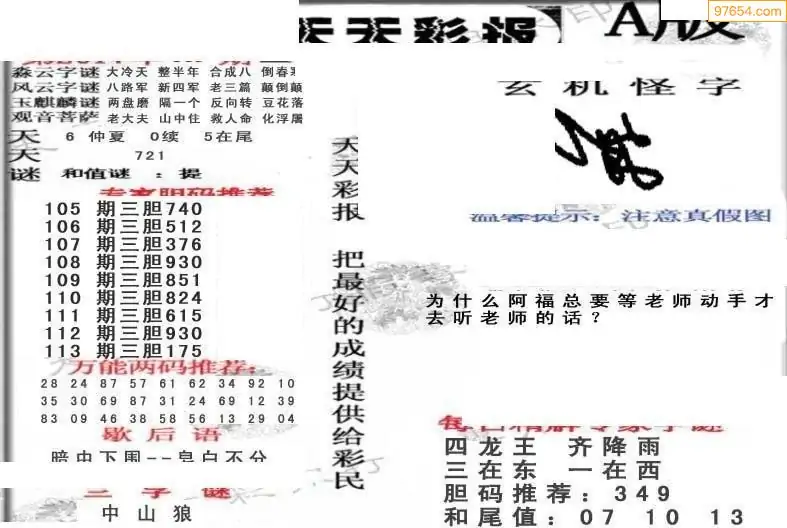 97654.com
天天彩报 A版
森云字谜 大冷天 整半年 合成八 倒春寒
风云字谜 八路军 新四军 老三篇 颠倒颠
玉麒麟谜 两盘磨 隔一个 反向转 豆花落
观音菩萨 老大夫 山中住 救人命 化浮屠
天 6 仲夏 0续 5在尾
天 721
谜 和值谜 : 提
专家胆码推荐
105 期三胆740
106 期三胆512
107 期三胆376
108 期三胆930
109 期三胆851
110 期三胆824
111 期三胆615
112 期三胆930
113 期三胆175
万能两码推荐:
28 24 87 57 61 62 34 92 10
35 30 69 87 31 24 69 12 39
83 09 46 38 58 56 13 29 04
歇后语
暗中下围--皂白不分
三字谜
中山狼
天天彩报 把最好的成绩提供给彩民
玄机怪字
温馨提示: 注意真假图
为什么阿福总要等老师动手才
去听老师的话?
每日精解专家字谜
四龙王 齐降雨
三在东 一在西
胆码推荐: 349
和尾值: 07 10 13